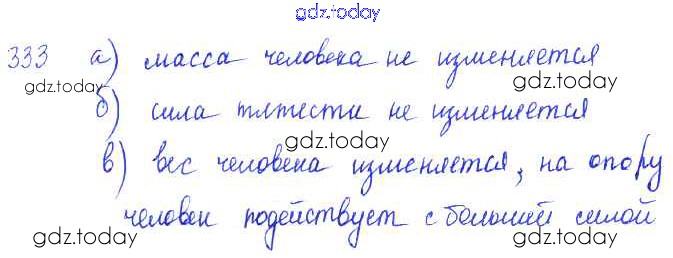 gdz.today
333 а) масса человека не изменяется
gdz.today gdz.today
б) сила тяжести не изменяется
gdz.today
в) вес человека изменяется, на опору
человек подействует с большей силой
gdz.today gdz.today